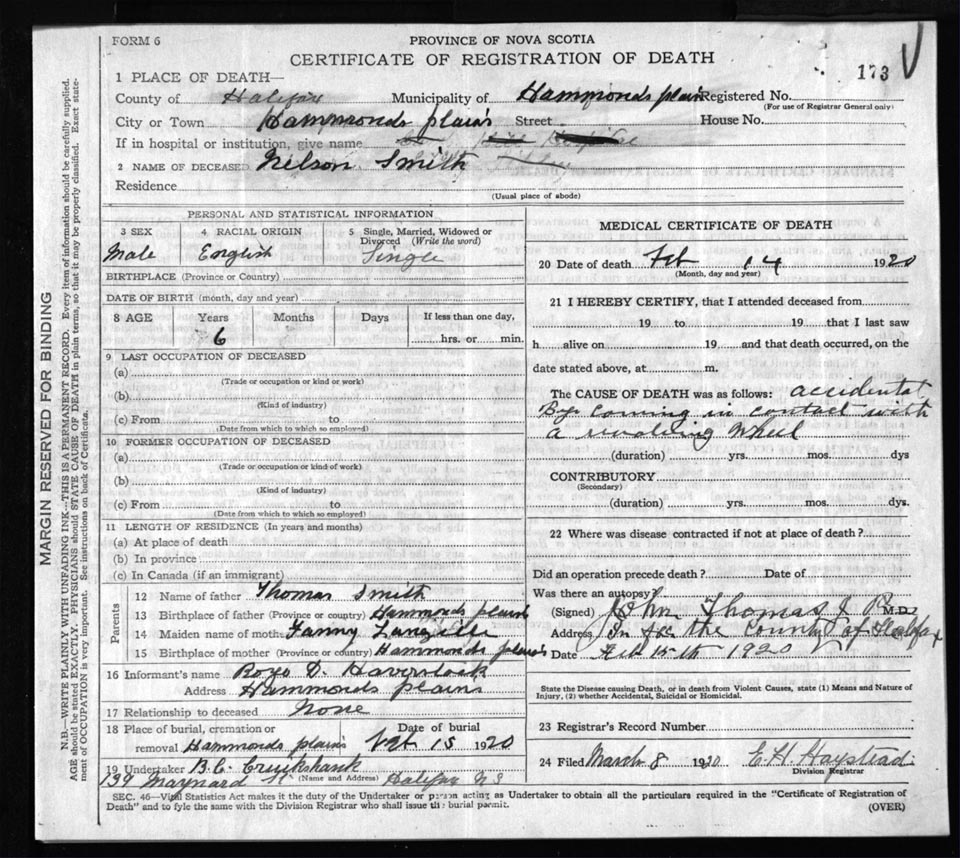 FORM 6
PROVINCE OF NOVA SCOTIA
CERTIFICATE OF REGISTRATION OF DEATH
173
1 PLACE OF DEATH—
County of Halifax Municipality of Hammonds plains Registered No.
(For use of Registrar General only)
City or Town Hammonds plains Street House No.
If in hospital or institution, give name
2 NAME OF DECEASED Nelson Smith
Residence
(Usual place of abode)
MARGIN RESERVED FOR BINDING
N.B.—WRITE PLAINLY WITH UNFADING INK—THIS IS A PERMANENT RECORD. Every item of information should be carefully supplied.
AGE should be stated EXACTLY. PHYSICIANS should STATE CAUSE OF DEATH in plain terms, so that it may be properly classified. Exact state-
ment of OCCUPATION is very important. See instructions on back of Certificate.
PERSONAL AND STATISTICAL INFORMATION
3 SEX 4 RACIAL ORIGIN 5 Single, Married, Widowed or
Divorced (Write the word)
Male English Single
BIRTHPLACE (Province or Country)
DATE OF BIRTH (month, day and year)
8 AGE Years Months Days If less than one day,
6 hrs. or min.
9 LAST OCCUPATION OF DECEASED
(a)
(Trade or occupation or kind or work)
(b)
(Kind of industry)
(c) From to
(Date from which to which so employed)
10 FORMER OCCUPATION OF DECEASED
(a)
(Trade or occupation or kind of work)
(b)
(Kind of industry)
(c) From to
(Date from which to which so employed)
11 LENGTH OF RESIDENCE (In years and months)
(a) At place of death
(b) In province
(c) In Canada (if an immigrant)
Parents
12 Name of father Thomas Smith
13 Birthplace of father (Province or country) Hammonds plains
14 Maiden name of mother Fanny Langille
15 Birthplace of mother (Province or country) Hammonds plains
16 Informant's name D. Haverstock
Address Hammonds plains
17 Relationship to deceased None
18 Place of burial, cremation or Date of burial
removal Hammonds plains Feb 15 1920
19 Undertaker B.C. Cruikshank
139 Maynard (Name and Address) Halifax N S
MEDICAL CERTIFICATE OF DEATH
20 Date of death Feb 14 1920
(Month, day and year)
21 I HEREBY CERTIFY, that I attended deceased from
19 to 19 that I last saw
h alive on 19 and that death occurred, on the
date stated above, at m.
The CAUSE OF DEATH was as follows: accidental
By coming in contact with
a revolving wheel
(duration) yrs. mos. dys
CONTRIBUTORY
(Secondary)
(duration) yrs. mos. dys.
22 Where was disease contracted if not at place of death?
Did an operation precede death? Date of
Was there an autopsy?
(Signed) John Thomas J P M.D.
Address In for the County of Halifax
Date Feb 15th 1920
State the Disease causing Death, or in death from Violent Causes, state (1) Means and Nature of
Injury, (2) whether Accidental, Suicidal or Homicidal.
23 Registrar's Record Number
24 Filed March 8 1920 E. H. Haystead
Division Registrar
SEC. 46—Vital Statistics Act makes it the duty of the Undertaker or person acting as Undertaker to obtain all the particulars required in the "Certificate of Registration of
Death" and to fyle the same with the Division Registrar who shall issue the burial permit. (OVER)